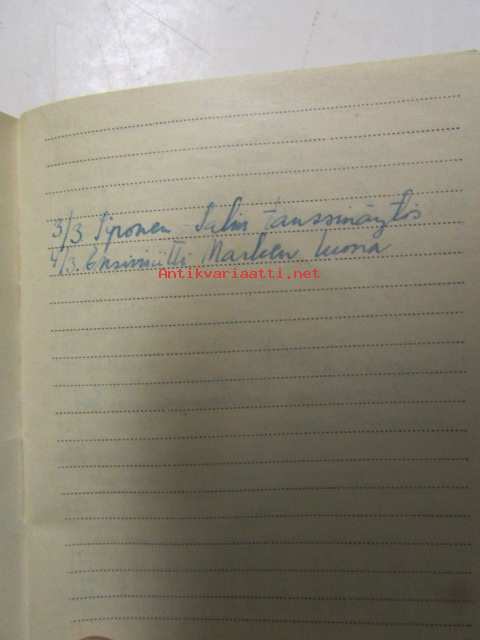 3/3 Sironen - Salin tanssinäytös
4/3. Ensimiitti Marleen luona
Antikvariaatti.net